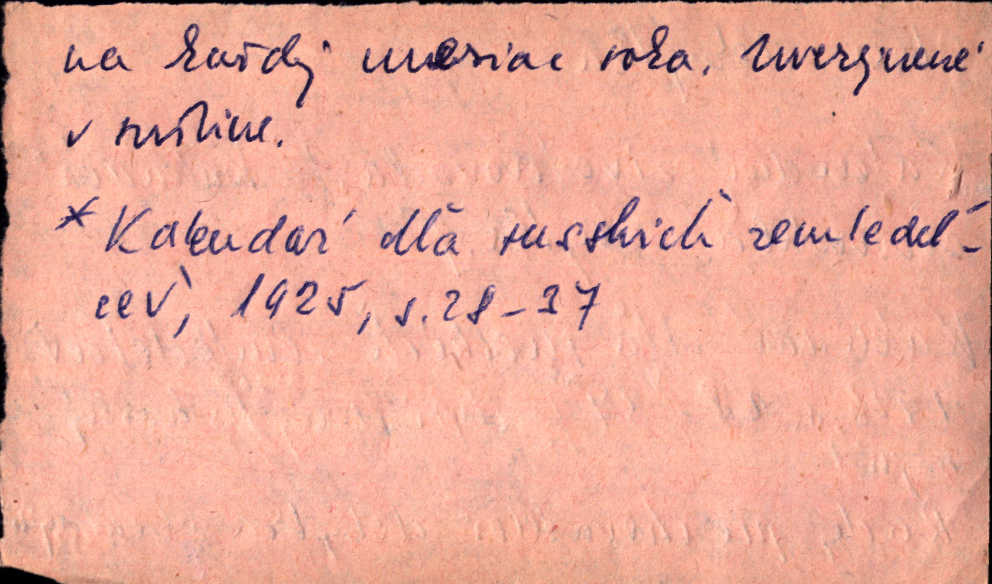 na každý mesiac roka. Uverejnené
v rusštine.
* Kalendaŕ dlă russkich zemledeĺ-
cev, 1925, s. 28-37